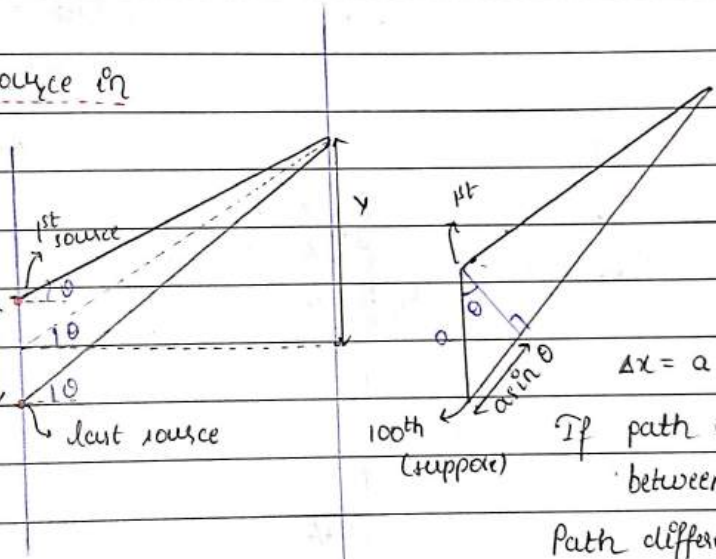 in
1st source
θ
θ
θ
last source
y
1st
θ
a
a sin θ
100th
(suppose)
Δx = a
If path
between
Path differ